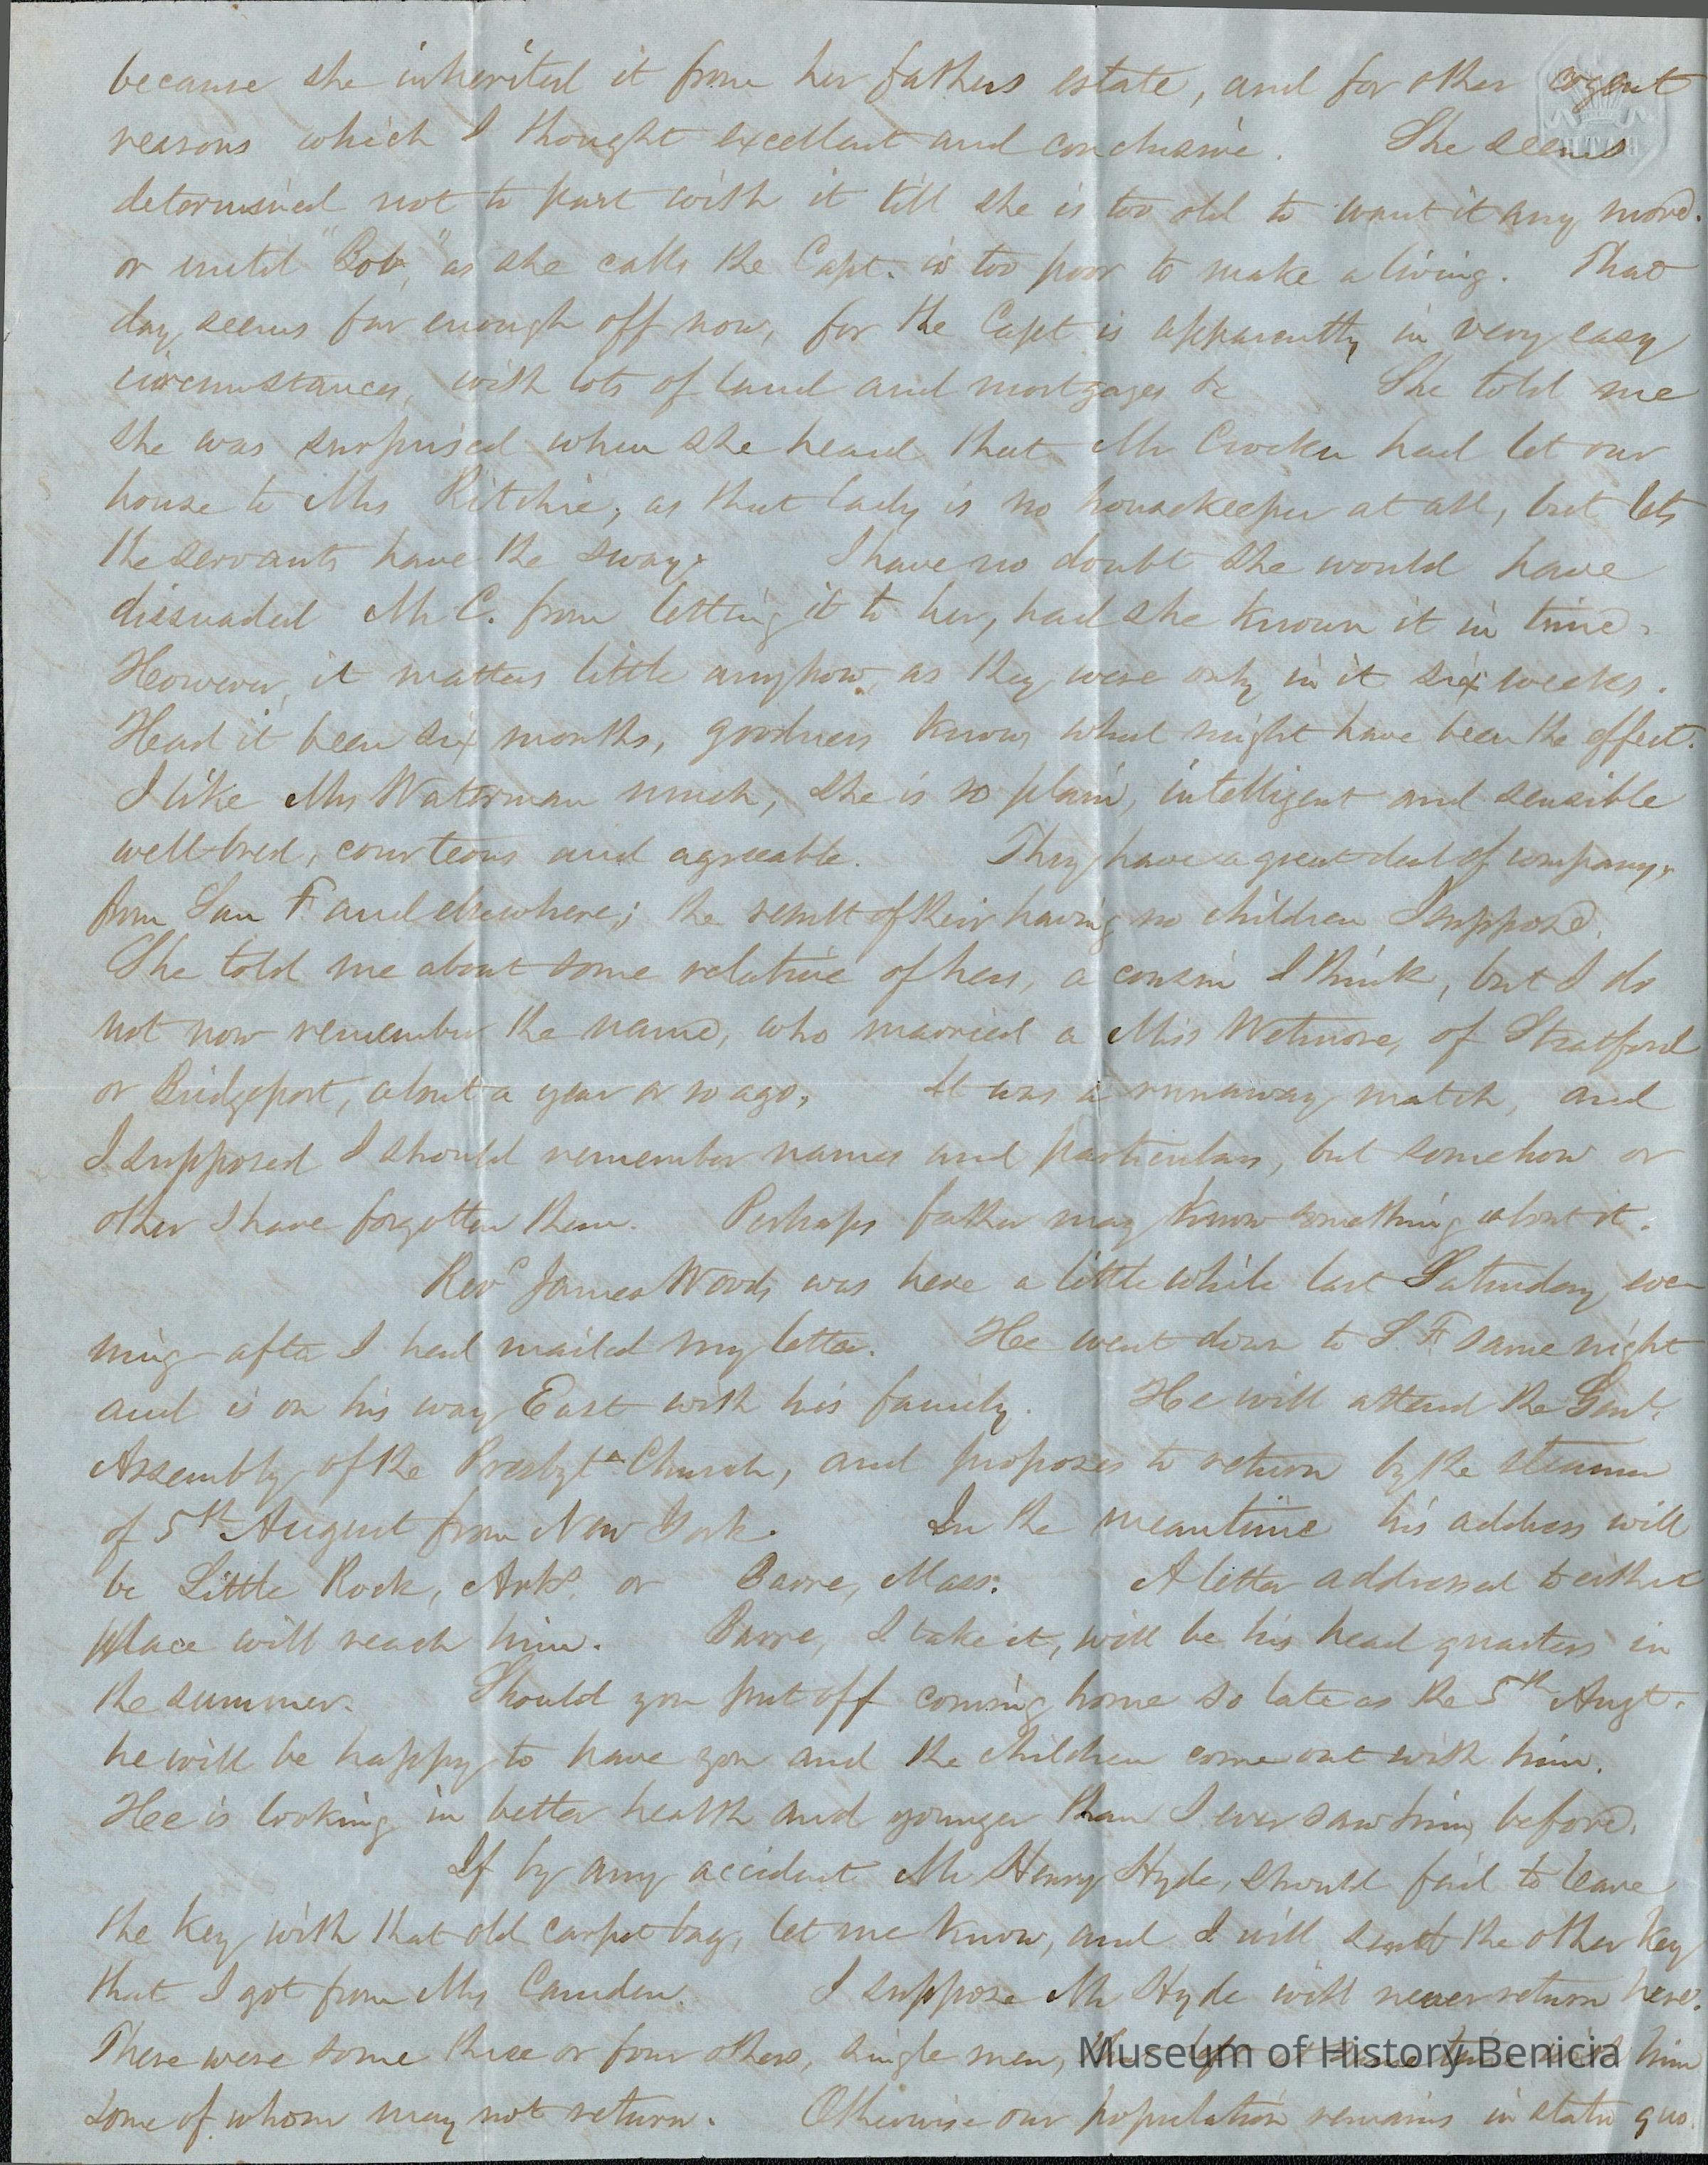 because she inherited it from her fathers estate, and for other cogent
reasons which I thought excellent and conclusive. She seems
determined not to part with it till she is too old to want it any more.
or until "Bob," as she calls the Capt. is too poor to make a living. That
day seems far enough off now, for the Capt is apparently in very easy
circumstances, with lots of land and mortgages &c She told me
she was surprised when she heard that Mr Crocker had let our
house to Mrs Ritchie, as that lady is no housekeeper at all, but lets
the servants have the sway. I have no doubt she would have
dissuaded Mr C. from letting it to her, had she known it in time.
However, it matters little anyhow, as they were only in it six weeks.
Had it been six months, goodness knows what might have been the effect.
I like Mrs Waterman much, she is so plain, intelligent and sensible
well-bred, courteous and agreeable. They have a great deal of company,
from San F. and elsewhere; the result of their having no children I suppose.
She told me about some relative of hers, a cousin I think, but I do
not now remember the name, who married a Miss Wetmore, of Stratford
or Bridgeport, about a year or so ago. It was a runaway match, and
I supposed I should remember names and particulars, but somehow or
other I have forgotten them. Perhaps father may know something about it.
Revd James Woods was here a little while last Saturday eve
ning after I had mailed my letter. He went down to S.F. same night
and is on his way East with his family. He will attend the Genl.
Assembly of the Presbytn Church, and proposes to return by the steamer
of 5th August from New York. In the meantime his address will
be Little Rock, Arks. or Barre, Mass. A letter addressed to either
place will reach him. Barre, I take it, will be his head quarters in
the summer. Should you put off coming home so late as the 5th Augt.
he will be happy to have you and the children come out with him.
He is looking in better health and younger than I ever saw him before.
If by any accident Mr Henry Hyde, should fail to leave
the key with that old carpet bag, let me know, and I will send the other key
that I got from Mrs Camden. I suppose Mr Hyde will never return here.
There were some three or four others, single men, him
some of whom may not return. Otherwise our population remains in statu quo.
Museum of History Benicia